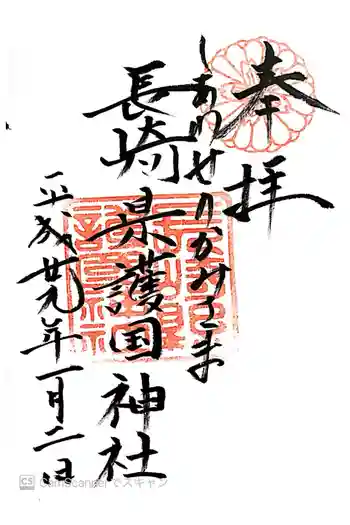 奉拝
しあわせりかみさま
長崎県護国神社
平成廿九年一月二日
CS CamScanner でスキャン